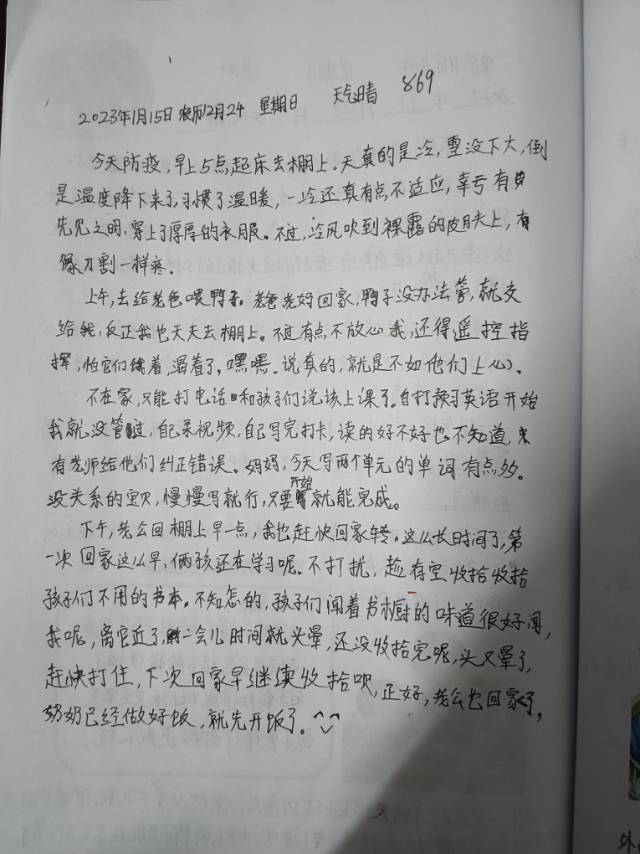 2023年1月15日 农历12月24 星期日 天气晴 869
今天防疫,早上5点起床去棚上。天真的是冷,雪没下大,倒
是温度降下来了,习惯了温暖,一冷还真有点不适应,幸亏有
先见之明,穿上了厚厚的衣服。不过,冷风吹到裸露的皮肤上,有
像刀割一样疼。
上午,去给爸爸喂鸭子。爸爸去好回家,鸭子没办法管,就交
给我,反正我也天天去棚上。不过有点不放心我,还得遥控指
挥,怕它们饿着,渴着了,嘿嘿。说真的,就是不如他们上心。
不在家,只能打电话和孩子们说该上课了。自打预习英语开始
我就没管过,自己录视频,自己写完打卡,读的好不好也不知道,
有老师给他们纠正错误。妈妈,今天写两个单元的单词有点多。
没关系的宝贝,慢慢写就行,只要开始就能完成。
下午,老公回棚上早一点,我也赶快回家转。这么长时间了,第
一次回家这么早,俩孩还在学习呢。不打扰,趁有空收拾收拾
孩子们不用的书本。不知怎的,孩子们闻着书橱的味道很好闻,
我呢,离它近了,一会儿时间就头晕,还没收拾完呢,头又晕了,
赶快打住,下次回家早继续收拾吹,正好,老公也回家了,
奶奶已经做好饭,就先开饭了。^_^
外